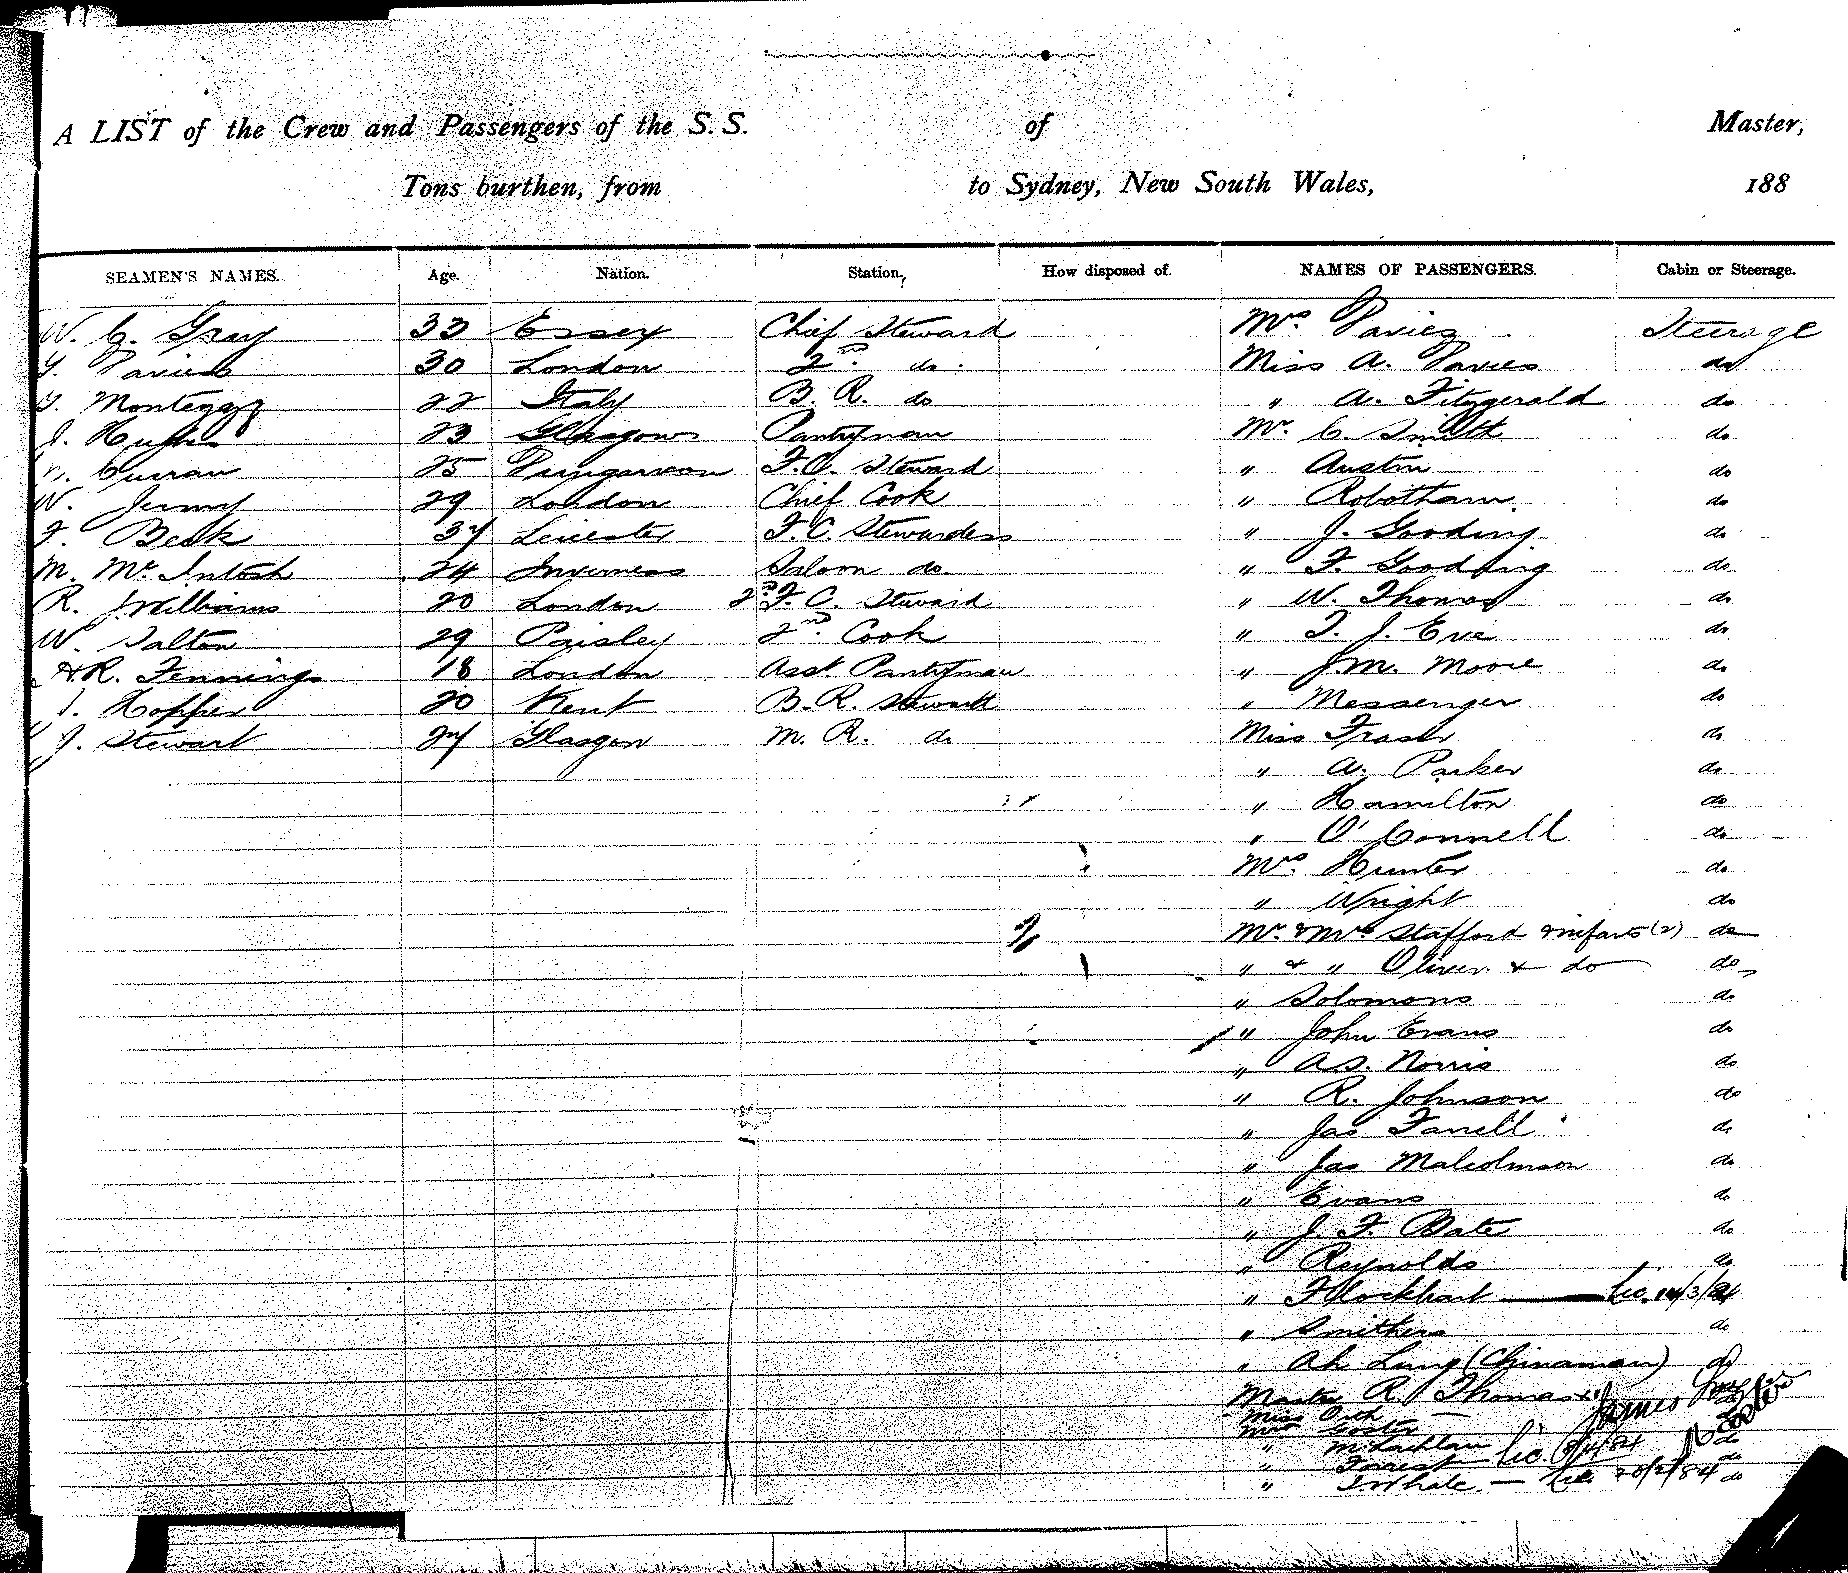 A LIST of the Crew and Passengers of the S. S. of Master,
Tons burthen, from to Sydney, New South Wales, 188
SEAMEN'S NAMES. Age. Nation. Station, How disposed of. NAMES OF PASSENGERS. Cabin or Steerage.
W. C. Gray 33 Essex Chief Steward Mrs. Davies Steerage
Davies 30 London 2nd. do. Miss A. Davies do
22 Italy B. R. do " A. Fitzgerald do
J. Hughes 23 Glasgow Pantryman Mr. C. Smith do
Curran 25 Dungarvan F. C. Steward " Austin do
W. Jenny 29 London Chief Cook " Robotham do
F. Beck 37 Leicester F. C. Stewardess " J. Gooding do
M. Mc. Intosh 24 Inverness Saloon do " F. Gooding do
R. Williams 20 London 2nd F. C. Steward " W. Thomas do
W. Talton 29 Paisley 2nd. Cook " T. J. Evie do
R. Jennings 18 London Asst. Pantryman " J. M. Moore do
Hopper 20 Kent B. R. Steward " Messenger do
J. Stewart 24 Glasgow M. R. do Miss Fraser do
" A. Parker do
" Hamilton do
" O'Connell do
Mrs. Hunter do
" Wright do
Mr. & Mrs Stafford & infants (2) do
" & " Oliver & do do
" Solomons do
" John Evans do
" A S. Norris do
" R. Johnson do
" Jas Farrell do
" Jas Malcolmson do
" Evans do
" J. F. Bate do
" Reynolds do
" F Lockhart
" Smithers do
" Ah Lung (Chinaman) do
Master R. Thomas
Miss Orth
Mrs Foster
" McLachlan do
" Forrest do
" do